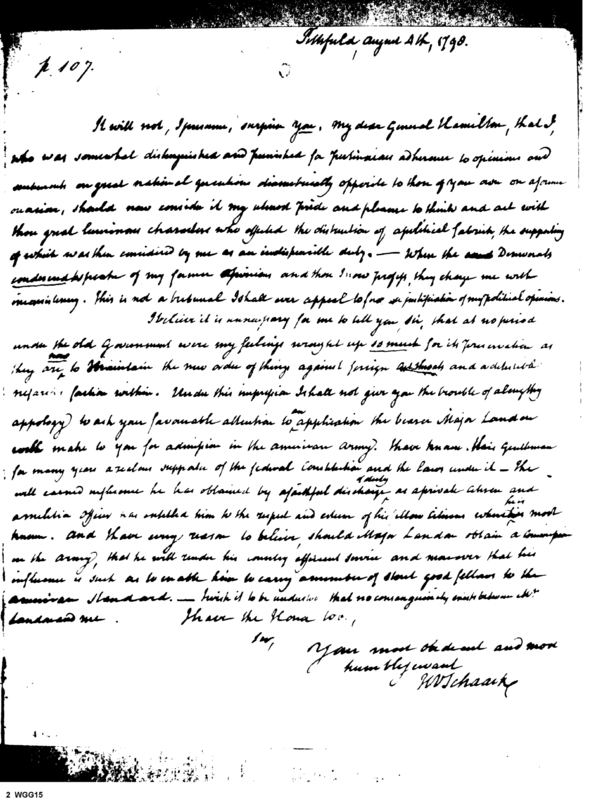 Pittsfield, August 4th, 1798.
p. 107.
It will not, I presume, surprise you, my dear General Hamilton, that I,
who was somewhat distinguished and punished for pertinacious adherence to opinions and
sentiments on great national questions diametrically opposite to those of your own on a former
occasion, should now consider it my utmost pride and pleasure to think and act with
those great luminous characters who effected the distruction of a political fabrick, the supporting
of which was then considered by me as an indispensible duty. — When the Democrats
condescend to speak of my former opinions and those I now profess, they charge me with
inconsistency. This is not a tribunal I shall ever appeal to for a justification of my political opinions.
I believe it is unnecessary for me to tell you, Sir, that at no period
under the old Government were my feelings wrought up so much for its preservation as
they are now to maintain the new order of things against foreign and a detestable
nefarious faction within. Under this impression I shall not give you the trouble of a lengthy
appology to ask your favourable attention to an application the bearer Major Landon
will make to you for admission in the american army. I have known this Gentleman
for many years a zealous supporter of the federal Constitution and the laws under it — The
well earned influence he has obtained by a faithful discharge of duty as a private citizen and
a militia officer has entitled him to the respect and esteem of his fellow Citizens where he is most
known. And I have every reason to believe, should Major Landon obtain a Commission
in the army, that he will render his country efficient service and moreover that his
influence is such as to enable him to carry a number of stout good fellows to the
american standard. — I wish it to be understood that no consanguinity exists between Mr
Landon and me. I have the Honor to be,
Sir,
Your most obedient and most
humble servant
H V Schaack
4
2 WGG15